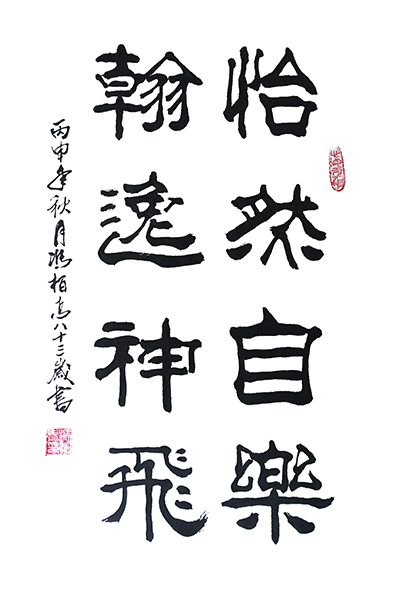 怡然自樂
翰逸神飛
丙申年秋月馮柏高八十二歲書